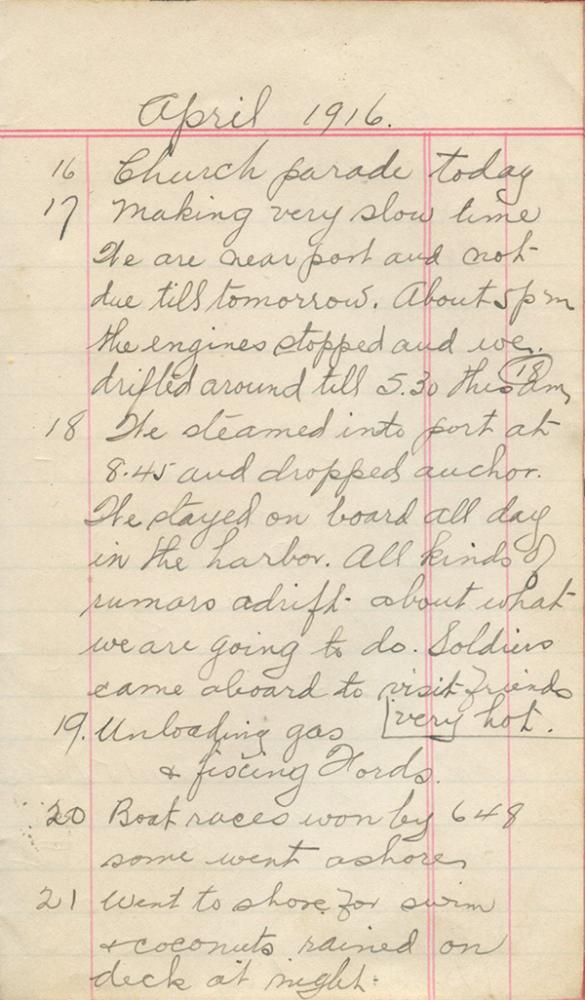 April 1916.
16 Church parade today
17 Making very slow time
We are near port and not
due till tomorrow. About 5pm
the engines stopped and we
drifted around till 5.30 this (18) am,
18 We steamed into port at
8.45 and dropped anchor.
We stayed on board all day
in the harbor. All kinds of
rumars adrift about what
we are going to do. Soldiers
came aboard to visit friends
very hot.
19. Unloading gas
& fixing Fords.
20 Boat races won by 648
some went ashore
21 Went to shore for swim
& coconuts rained on
deck at night.